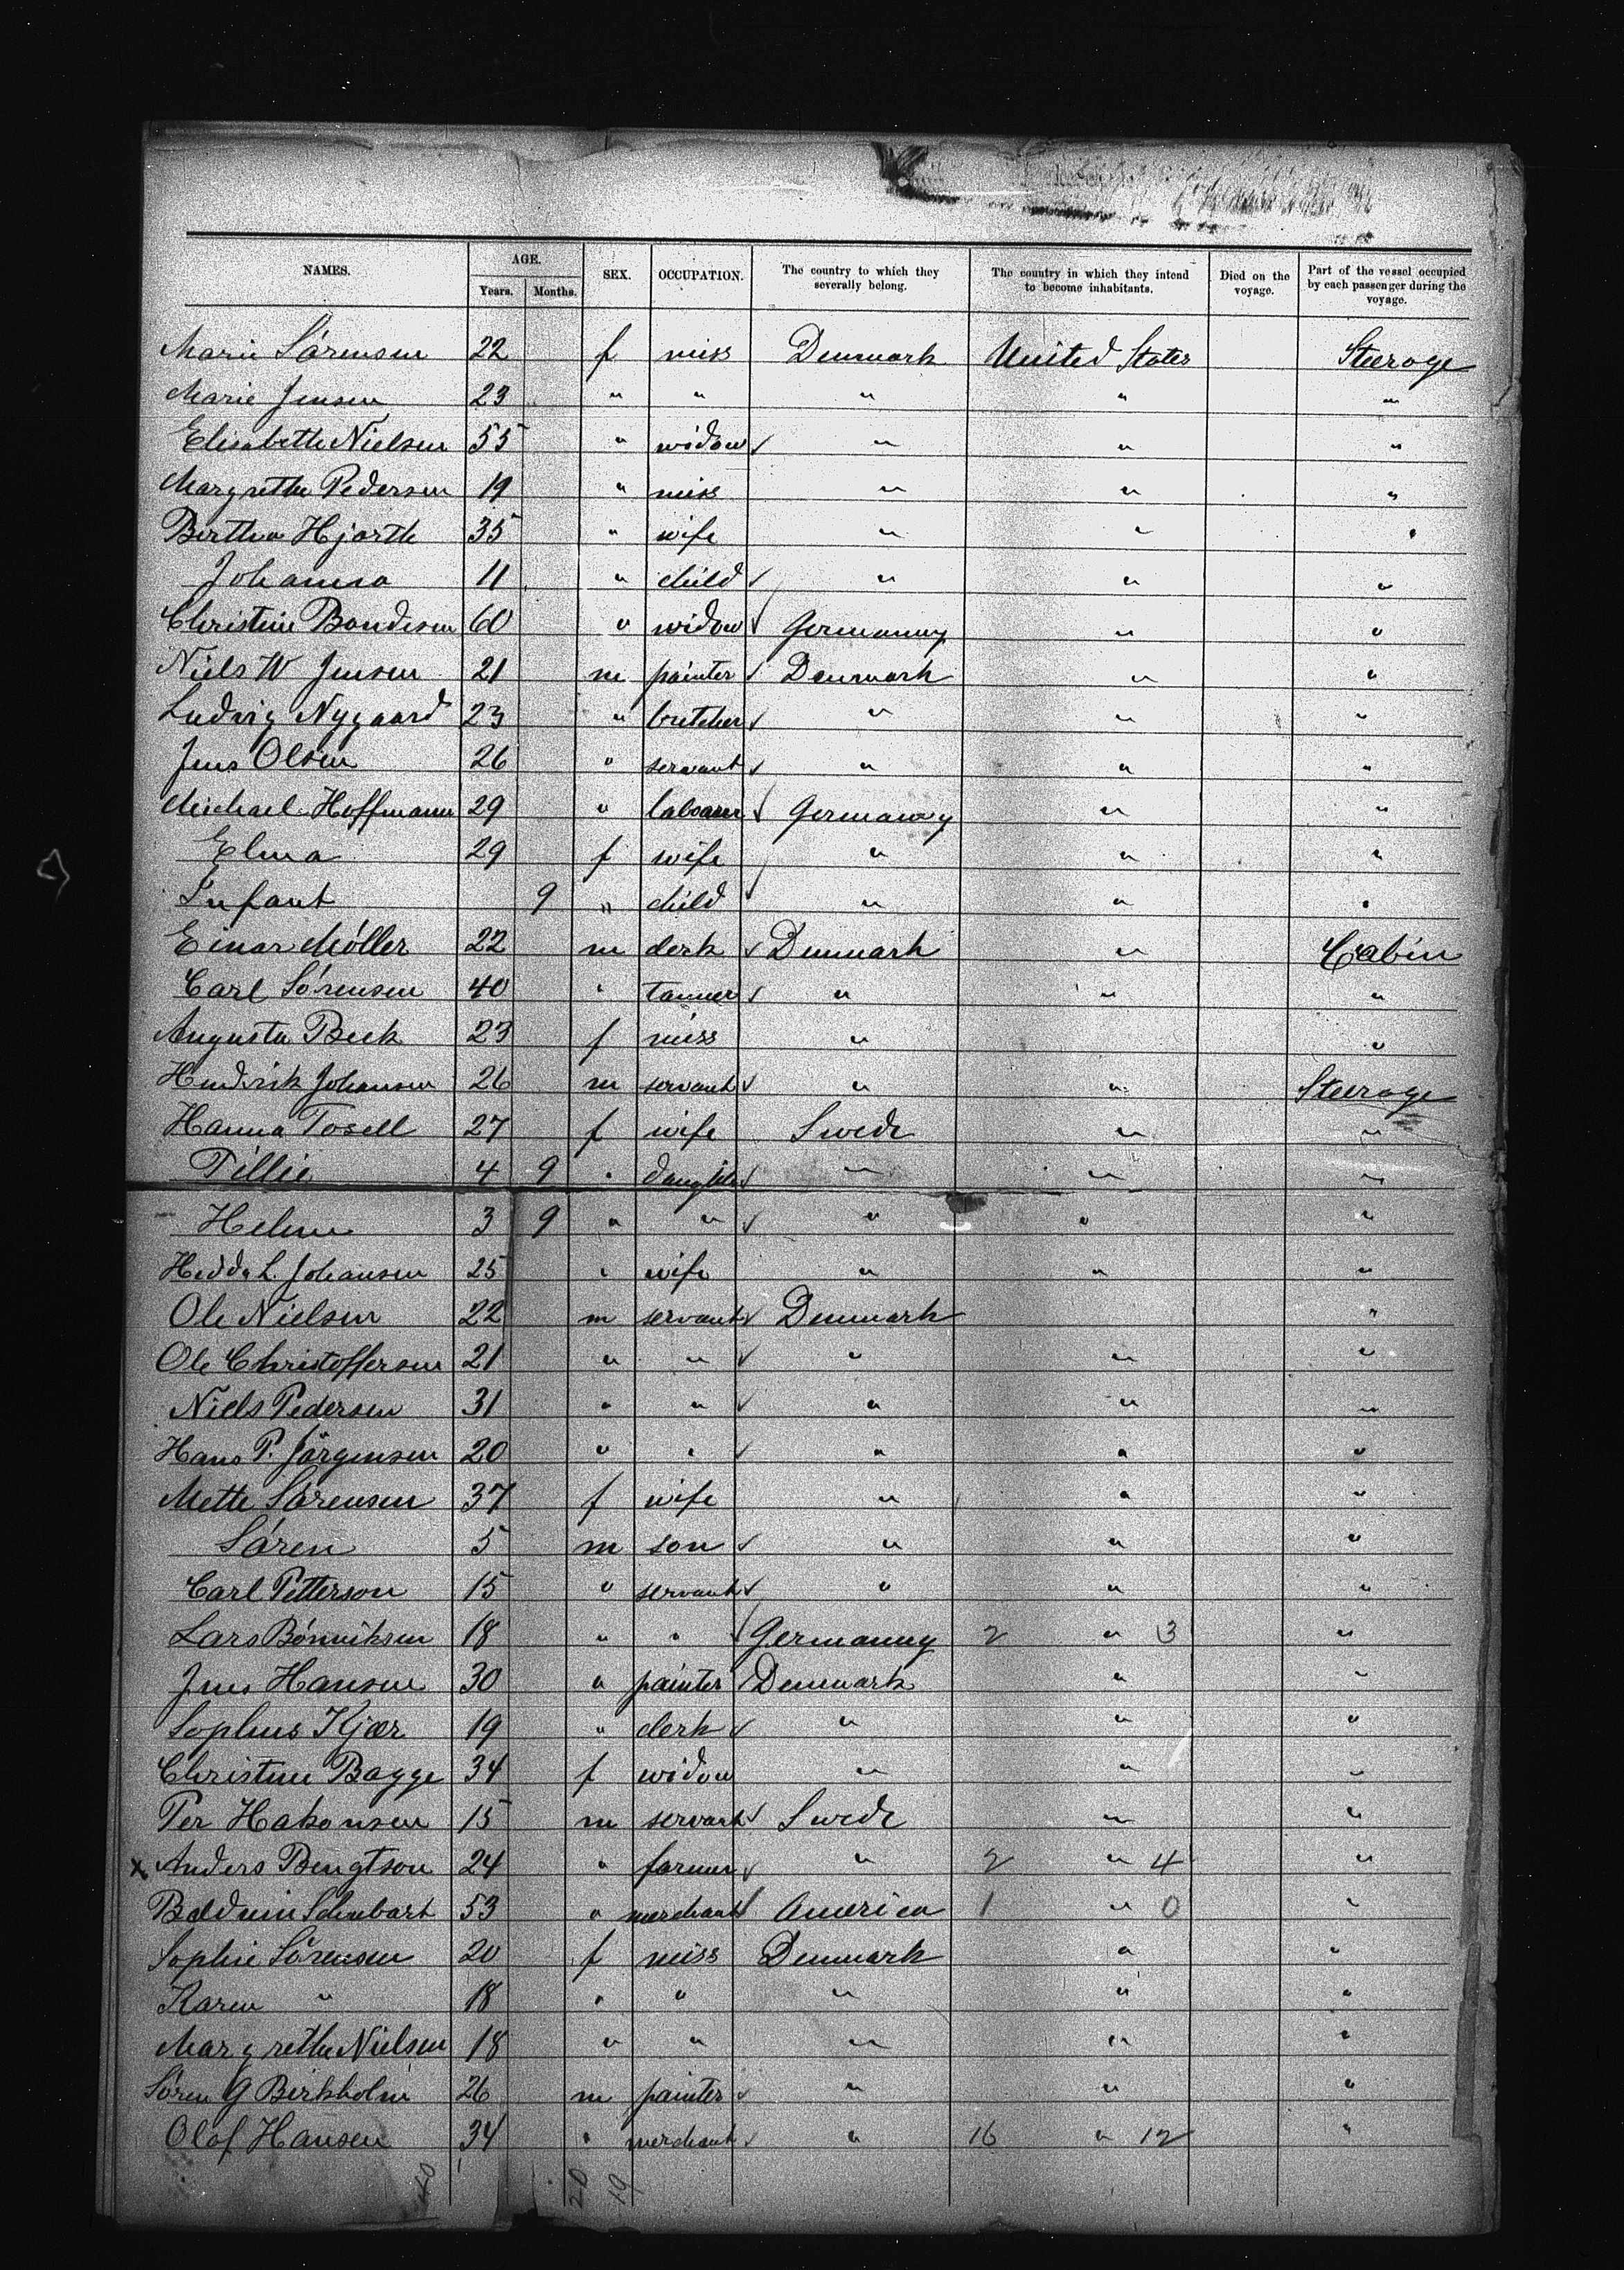 NAMES. AGE. Years. Months. SEX. OCCUPATION. The country to which they severally belong. The country in which they intend to become inhabitants. Died on the voyage. Part of the vessel occupied by each passenger during the voyage.
Marie Sörensen 22 f miss Denmark United States Steerage
Marie Jensen 23 " " " " "
Elisabeth Nielsen 55 " widow " " "
Margrethe Pedersen 19 " miss " " "
Bertha Hjorth 35 " wife " " "
Johanna 11 " child " " "
Christine Bondesen 60 " widow Germanny " "
Niels W Jensen 21 m painter Denmark " "
Ludvig Nygaard 23 " butcher " " "
Jens Olsen 26 " servant " " "
Michael Hoffmann 29 " labourer Germany " "
Elma 29 f wife " " "
Infant 9 " child " " "
Einar Möller 22 m clerk Denmark " Cabin
Carl Sörensen 40 " tanner " " "
Augusta Beck 23 f miss " "
Hendrik Johansen 26 m servant " " Steerage
Hanna Tosell 27 f wife Swede " "
Tillie 4 9 " daughter " " "
Helene 3 9 " " " " "
Hedda L. Johansen 25 " wife " " "
Ole Nielsen 22 m servant Denmark "
Ole Christoffersen 21 " " " " "
Niels Pedersen 31 " " " " "
Hans P. Jörgensen 20 " " " " "
Mette Sörensen 37 f wife " " "
Sören 5 m son " " "
Carl Petterson 15 " servant " " "
Lars 18 " " Germanny 2 " 3 "
Jens Hansen 30 " painter Denmark " "
Sophus Kjær 19 " clerk " " "
Christine Bagge 34 f widow " " "
Per Hakonsen 15 m servant Swede " "
x Anders Bengtson 24 " farmer " 2 " 4 "
Baldwin Schubart 53 " merchant America 1 " 0 "
Sophie Sörensen 20 f miss Denmark " "
Karen " 18 " " " " "
Margrethe Nielsen 18 " " " " "
Sören G Birkholm 26 m painter " " "
Olof Hansen 34 " merchant " 16 " 12 "
40 20 19